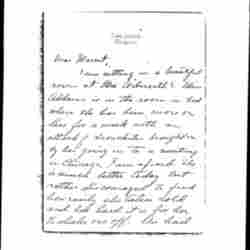 Dear Harriet,
I am sitting in a beautiful
room at Mrs. Miss
Addams is in the room in bed
where she has been more or
less for a week with an
attack of bronchitis brought on
by her going in to a meeting
in Chicago. I am afraid she
is much better today but
rather discouraged to find
how easily she takes cold
and how hard it is for her
to shake one off. She had